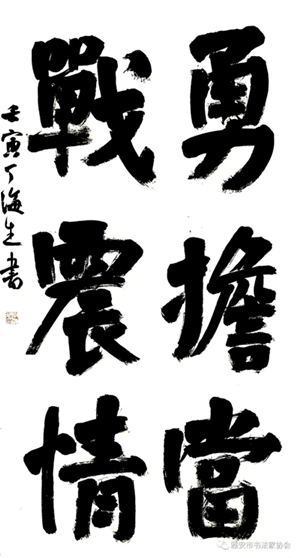 勇擔當
戰震情
壬寅丁海生書
西安市书法家协会